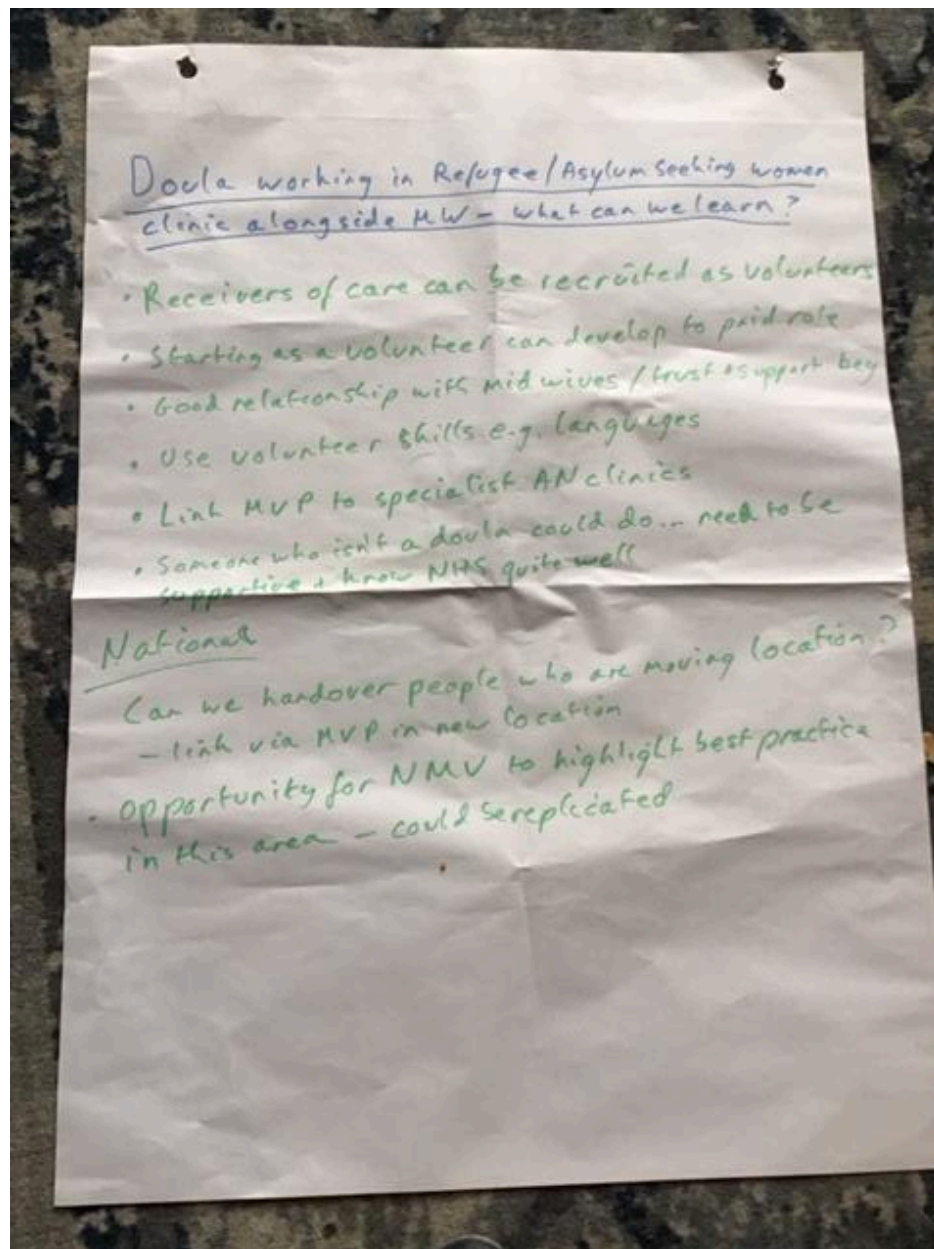 Doula working in Refugee/Asylum Seeking women
clinic alongside MW - what can we learn?
• Receivers of care can be recruited as volunteers
• Starting as a volunteer can develop to paid role
• Good relationship with midwives / trust + support key
• Use volunteer skills e.g. languages
• Link MVP to specialist AN clinics
• Someone who isn't a doula could do... need to be
supportive + know NHS quite well
National
Can we handover people who are moving location?
- link via MVP in new location
• Opportunity for NMV to highlight best practice
in this area - could be replicated